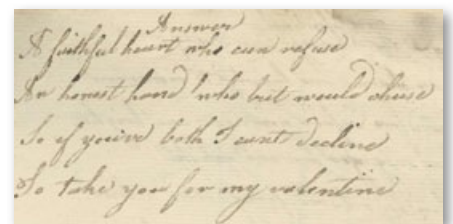 Answer
A faithful heart who can refuse
An honest hand who but would chuse
So if you've both I cant decline
To take you for my valentine